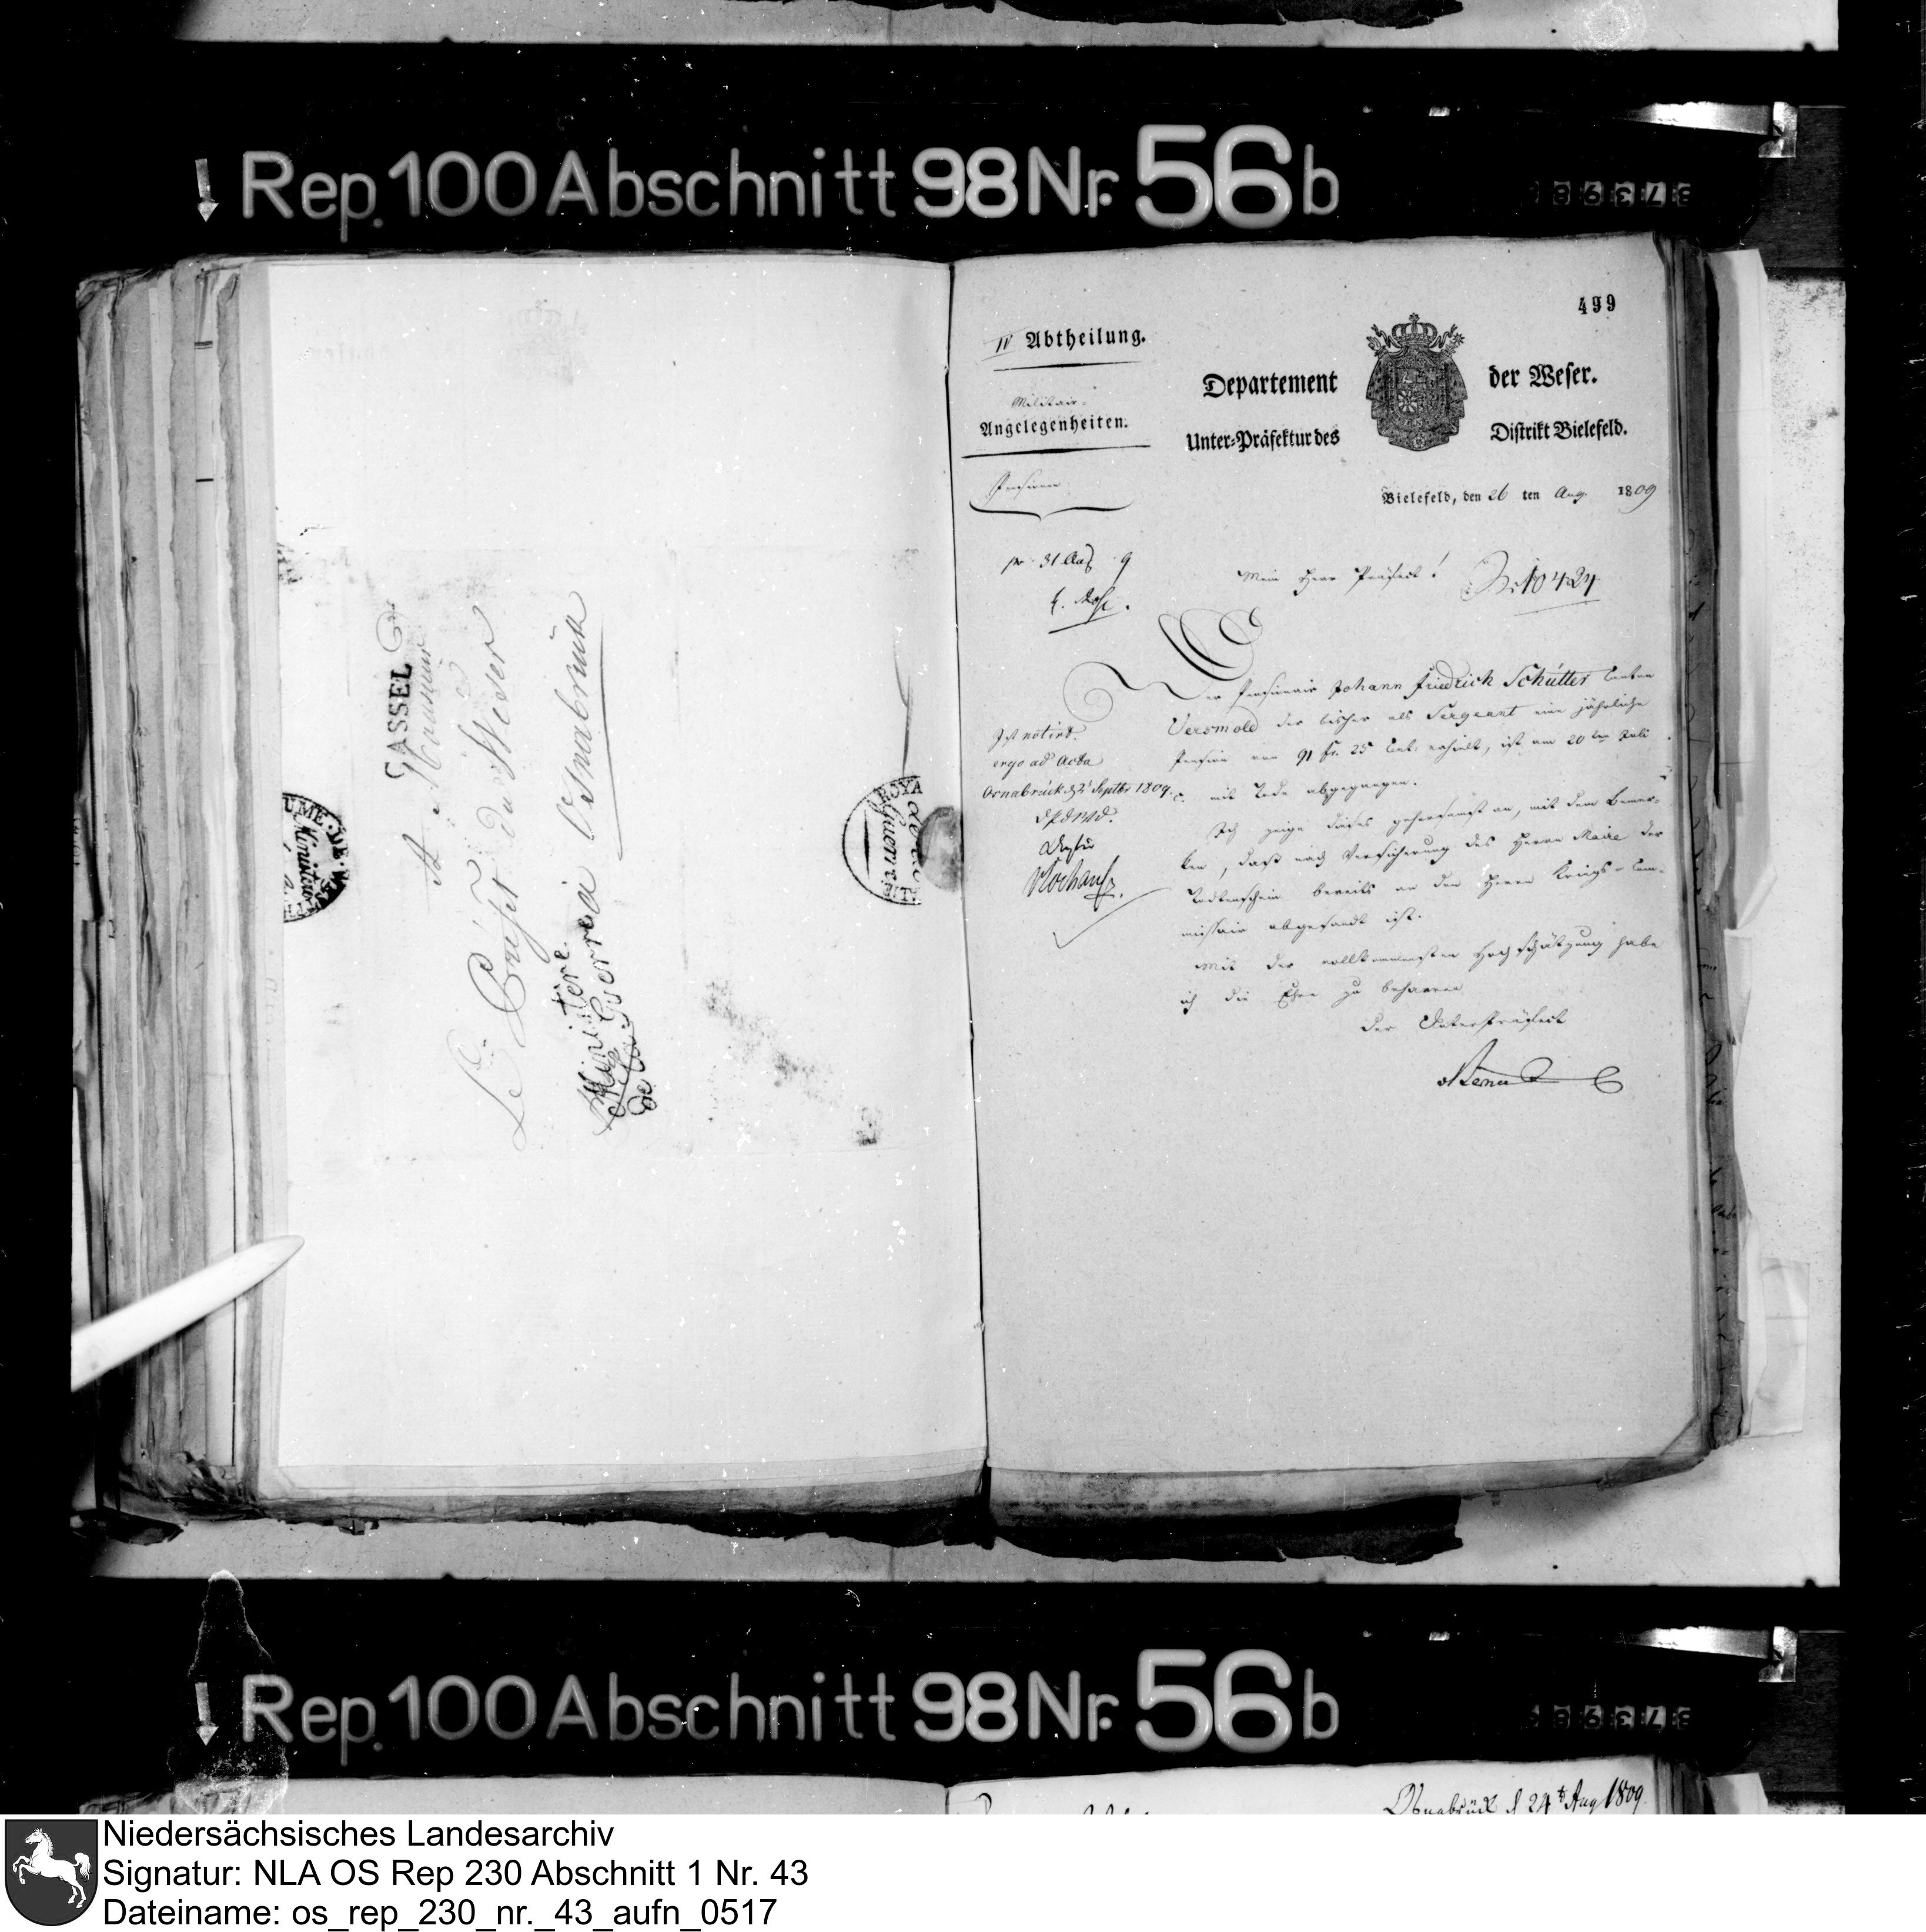 Rep. 100 Abschnitt 98 Nr. 56 b
CASSEL
A Monsieur
Le Préfet du Weser
à Osnabrück
Ministère
de la Guerre
499
IV Abtheilung.
Militair-
Angelegenheiten.
Pension
Departement der Weser.
Unter-Präfektur des Distrikt Bielefeld.
Bielefeld, den 26 ten Aug. 1809
pr. 31 Aug 9
Mein Herr Präfect!
Nr 10424
Der Pensionair Johann Friedrich Schütter Canton
Versmold der bisher als Sergeant eine jährliche
Pension von 91 fr. 25 Cent. erhielt, ist am 20ten Juli
c. mit Tode abgegangen.
Ich zeige dieses gehorsamst an, mit dem Bemer-
ken, daß nach Versicherung des Herrn Maire der
Todtenschein bereits an den Herrn Kriegs-Com-
missair abgesandt ist.
Mit der vollkommensten Hochschätzung habe
ich die Ehre zu beharren
Der Unterpräfect
Ist notirt.
ergo ad Acta
Osnabrück d 2 Septbr 1809.
Osnabrück d 24t Aug 1809.
Rep. 100 Abschnitt 98 Nr. 56 b
Niedersächsisches Landesarchiv
Signatur: NLA OS Rep 230 Abschnitt 1 Nr. 43
Dateiname: os_rep_230_nr._43_aufn_0517